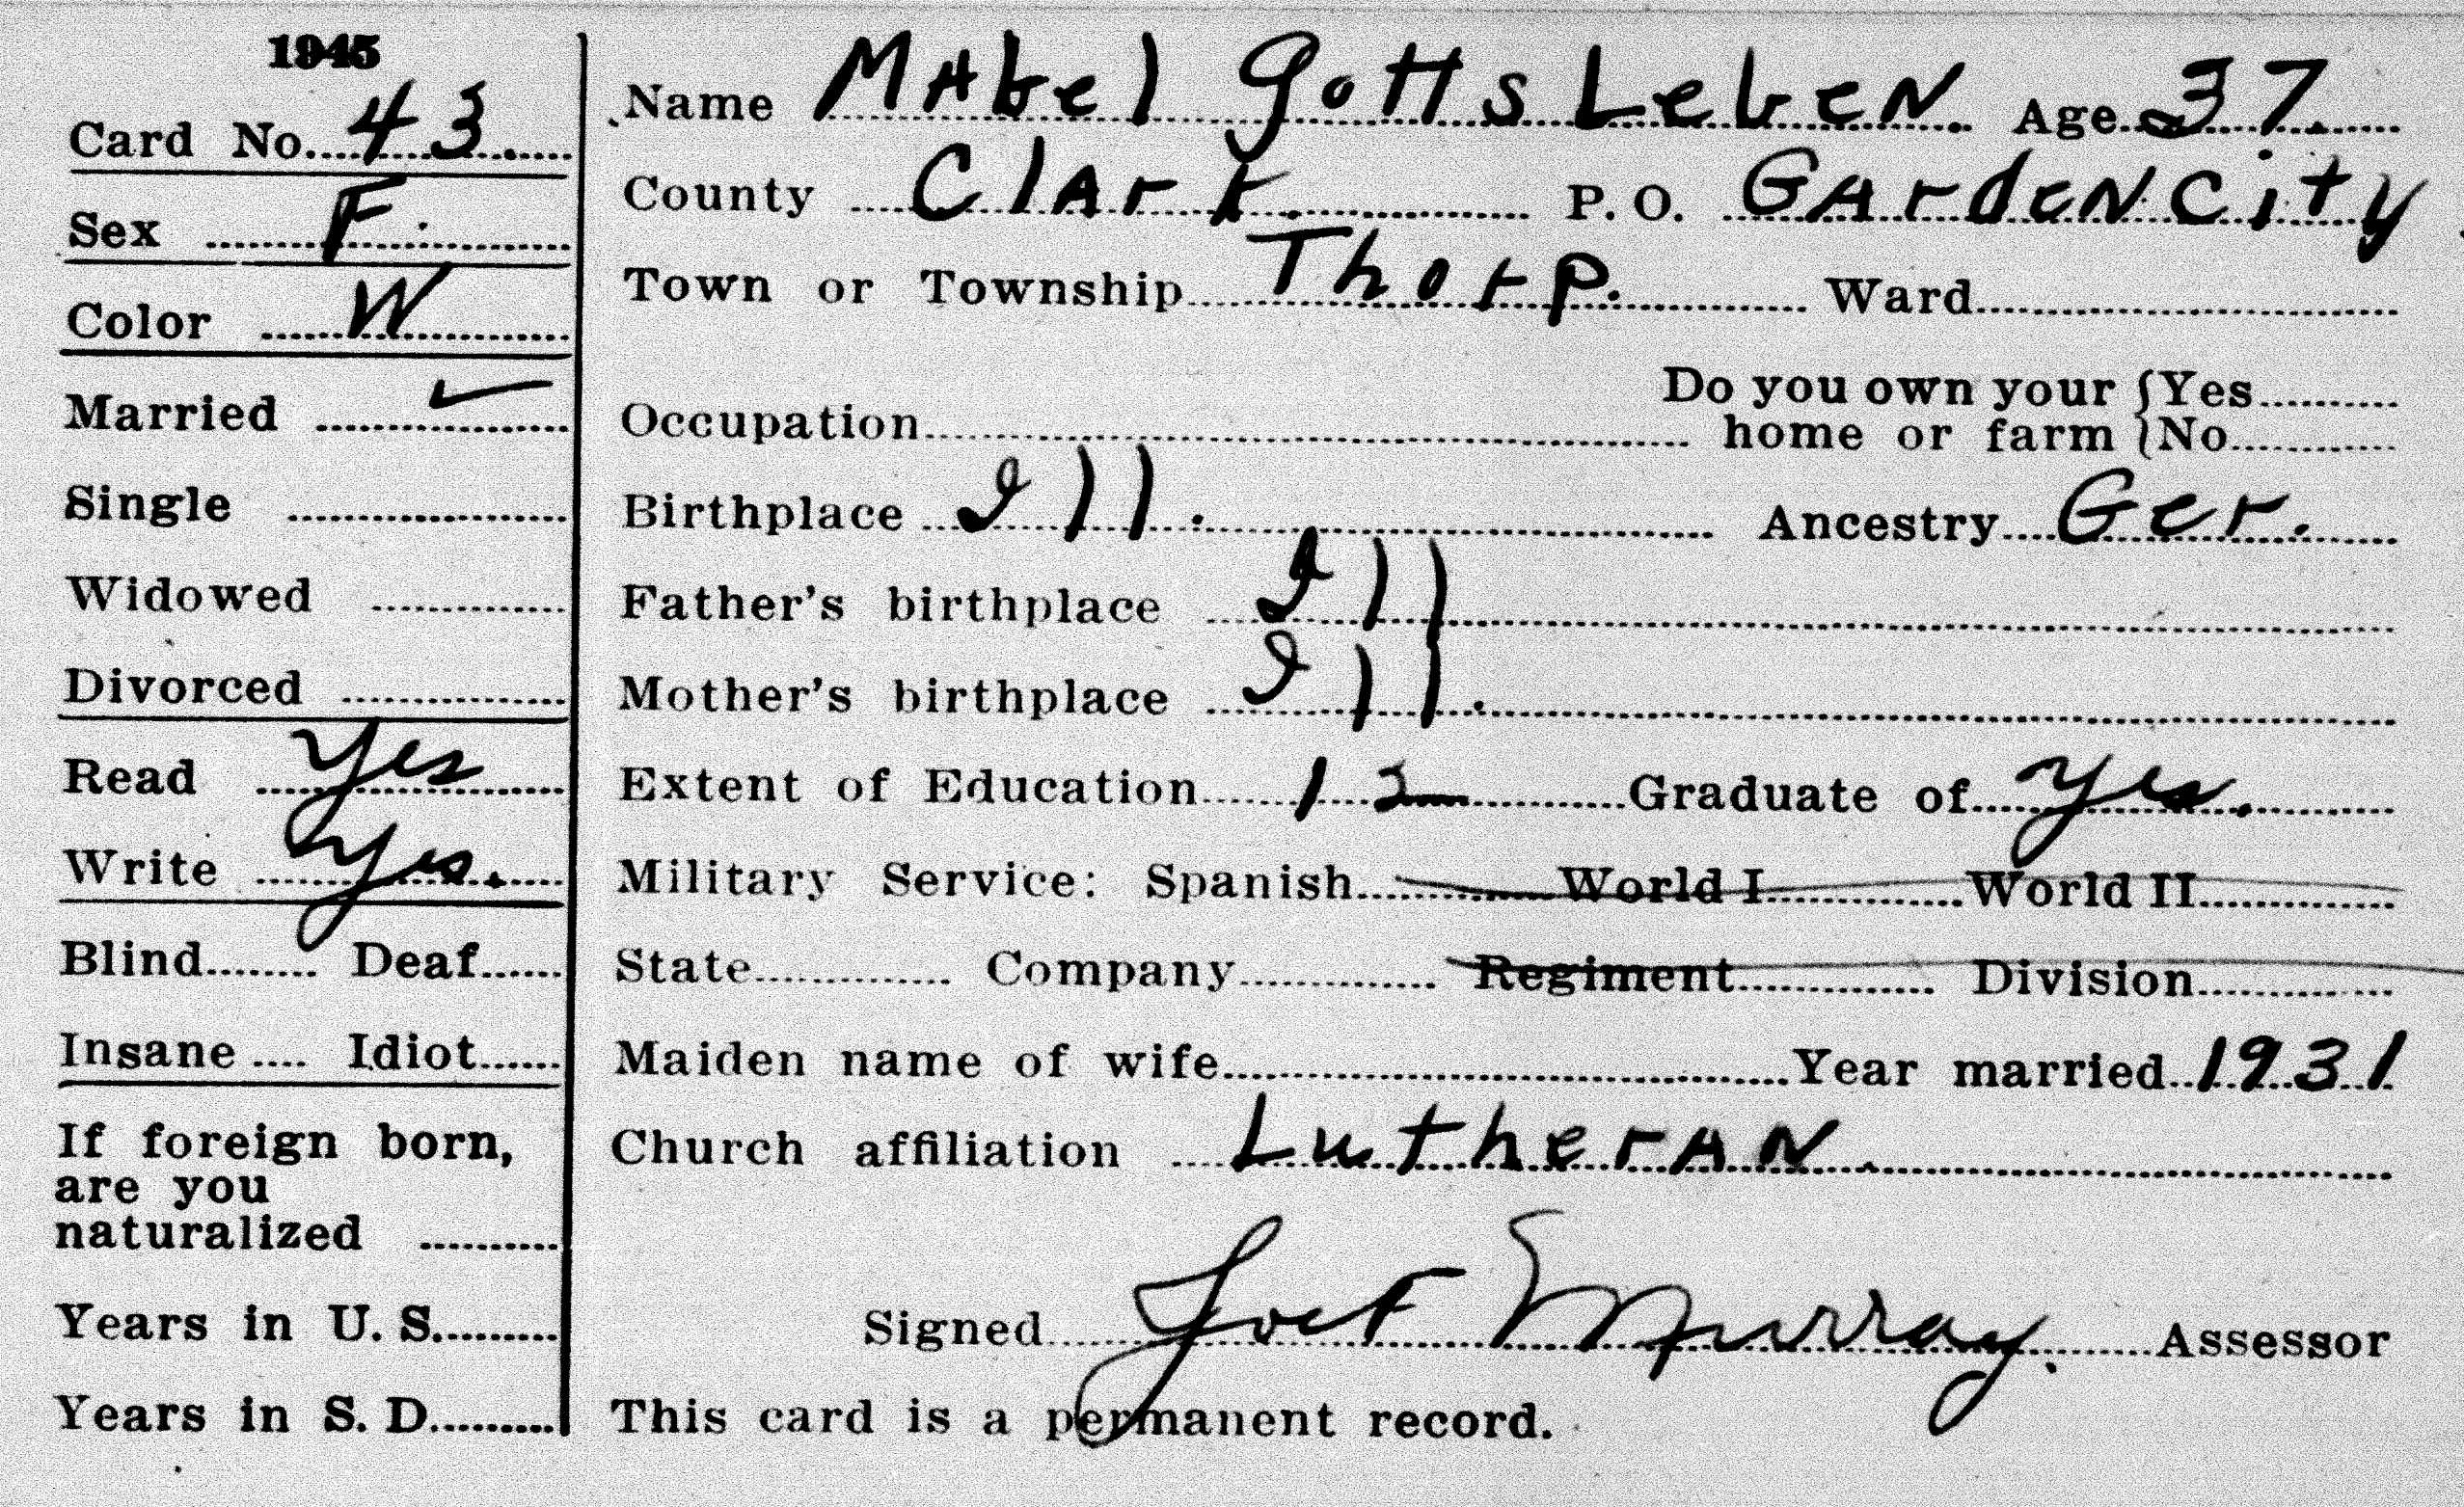 1945
Card No. 43.
Sex F.
Color W
Married ✓
Single
Widowed
Divorced
Read Yes
Write Yes.
Blind Deaf
Insane Idiot
If foreign born,
are you
naturalized
Years in U. S.
Years in S. D.
Name Mabel Gotts Leben. Age 37.
County Clark. P. O. Garden City.
Town or Township Thorp. Ward
Occupation Do you own your home or farm { Yes No
Birthplace Ill. Ancestry Ger.
Father's birthplace Ill
Mother's birthplace Ill.
Extent of Education 12 Graduate of Yes.
Military Service: Spanish World I World II
State Company Regiment Division
Maiden name of wife Year married 1931
Church affiliation Lutheran.
Signed Murray. Assessor
This card is a permanent record.